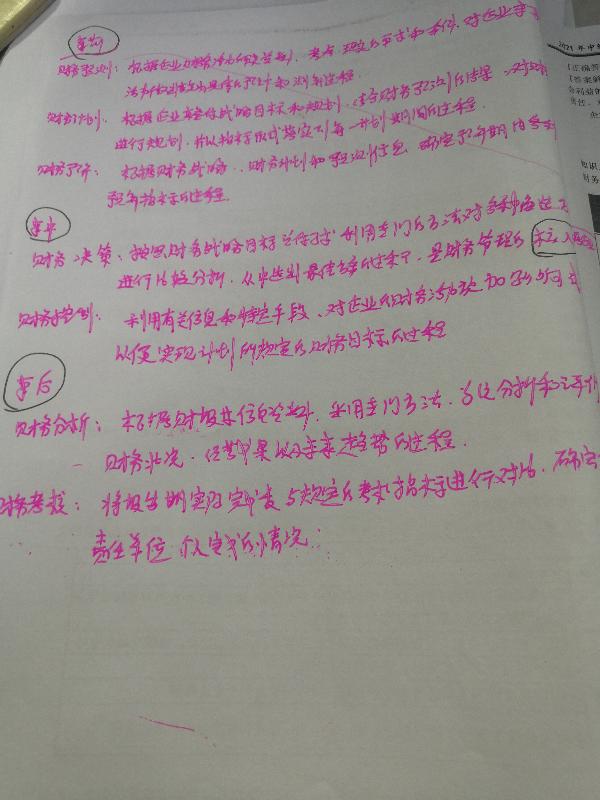 事前
财务预测：根据企业财务活动的历史资料，考虑现实的要求和条件，对企业未
活动作出具体的预计和测算过程。
财务计划：根据企业整体战略目标和规划，结合财务预测的结果，对财
进行规划，并以指标形式落实到每一计划期间的过程。
财务预算：根据财务战略、财务计划和预测信息，确定预算期内各
预算指标的过程。
事中
财务决策：按照财务战略目标总体要求利用专门的方法对各种备选方
进行比较分析，从中选出最佳方案的过程，是财务管理的核心
财务控制：利用有关信息和特定手段、对企业的财务活动施加影响
以便实现计划所规定的财务目标的过程
事后
财务分析：根据财报等信息资料，采用专门方法，系统分析和评价
财务状况、经营成果以及未来趋势的过程．
财务考核：将报告期实际完成数与规定的考核指标进行对比，确定
责任单位个人完成的情况
2021年中